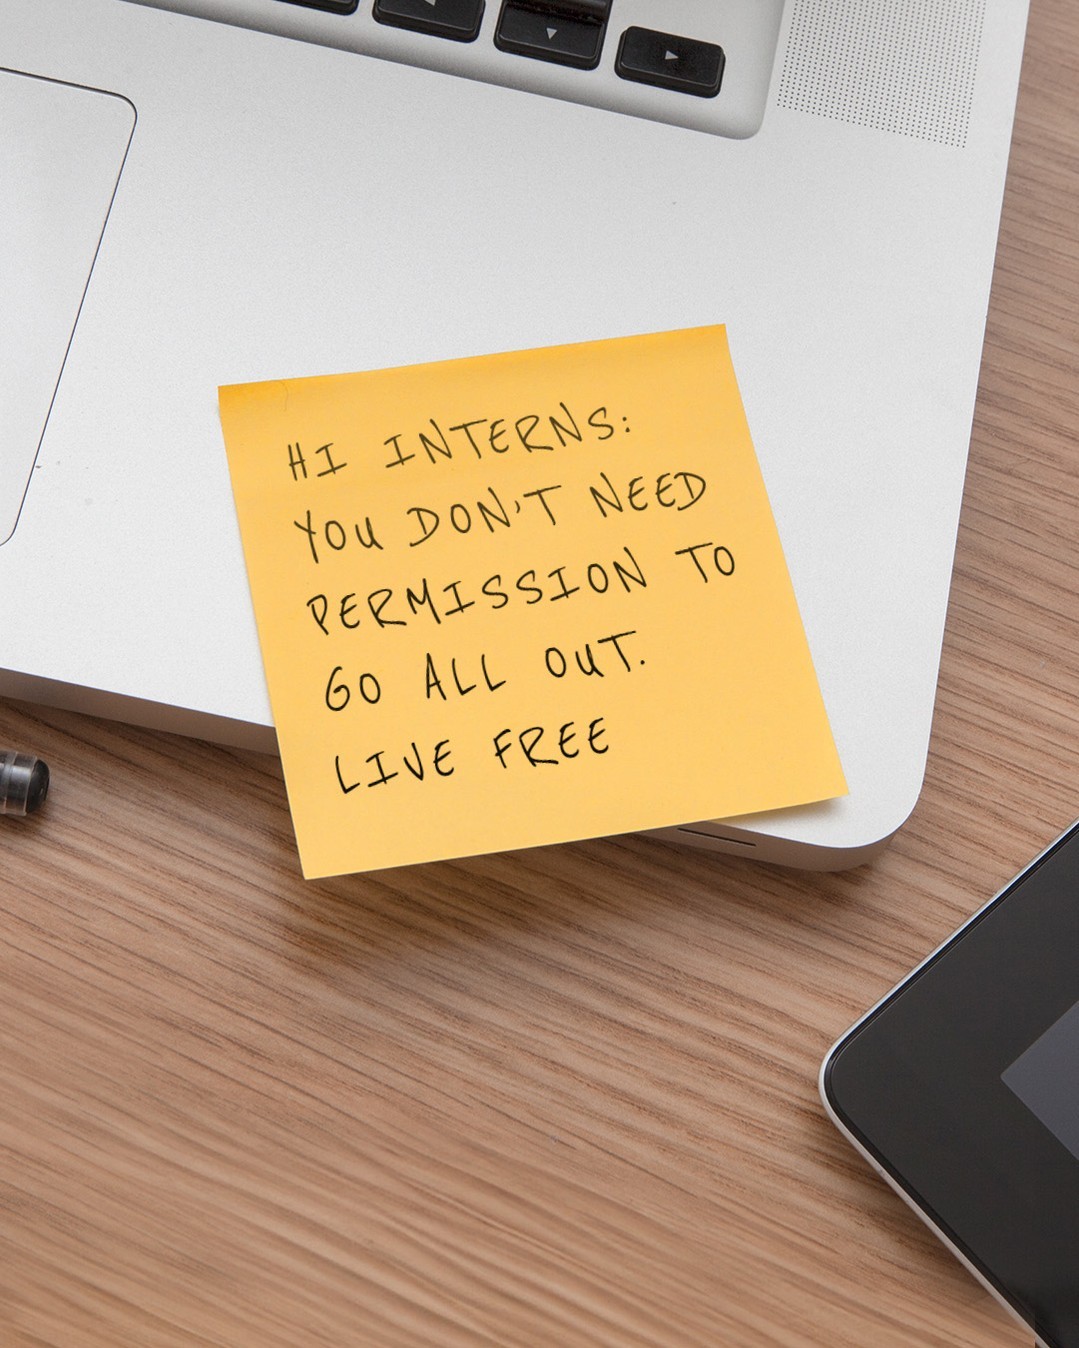 HI INTERNS:
YOU DON'T NEED
PERMISSION TO
GO ALL OUT.
LIVE FREE